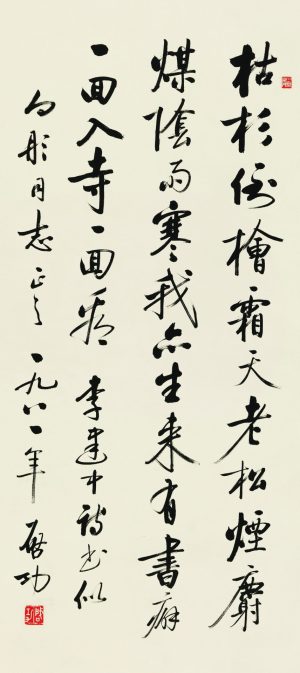 枯杉倒檜霜天老松煙麝
煤陰雨寒我亦生來有書癖
一回入寺一回看 李建中詩書似
向彤同志正之 一九八一年 啓功